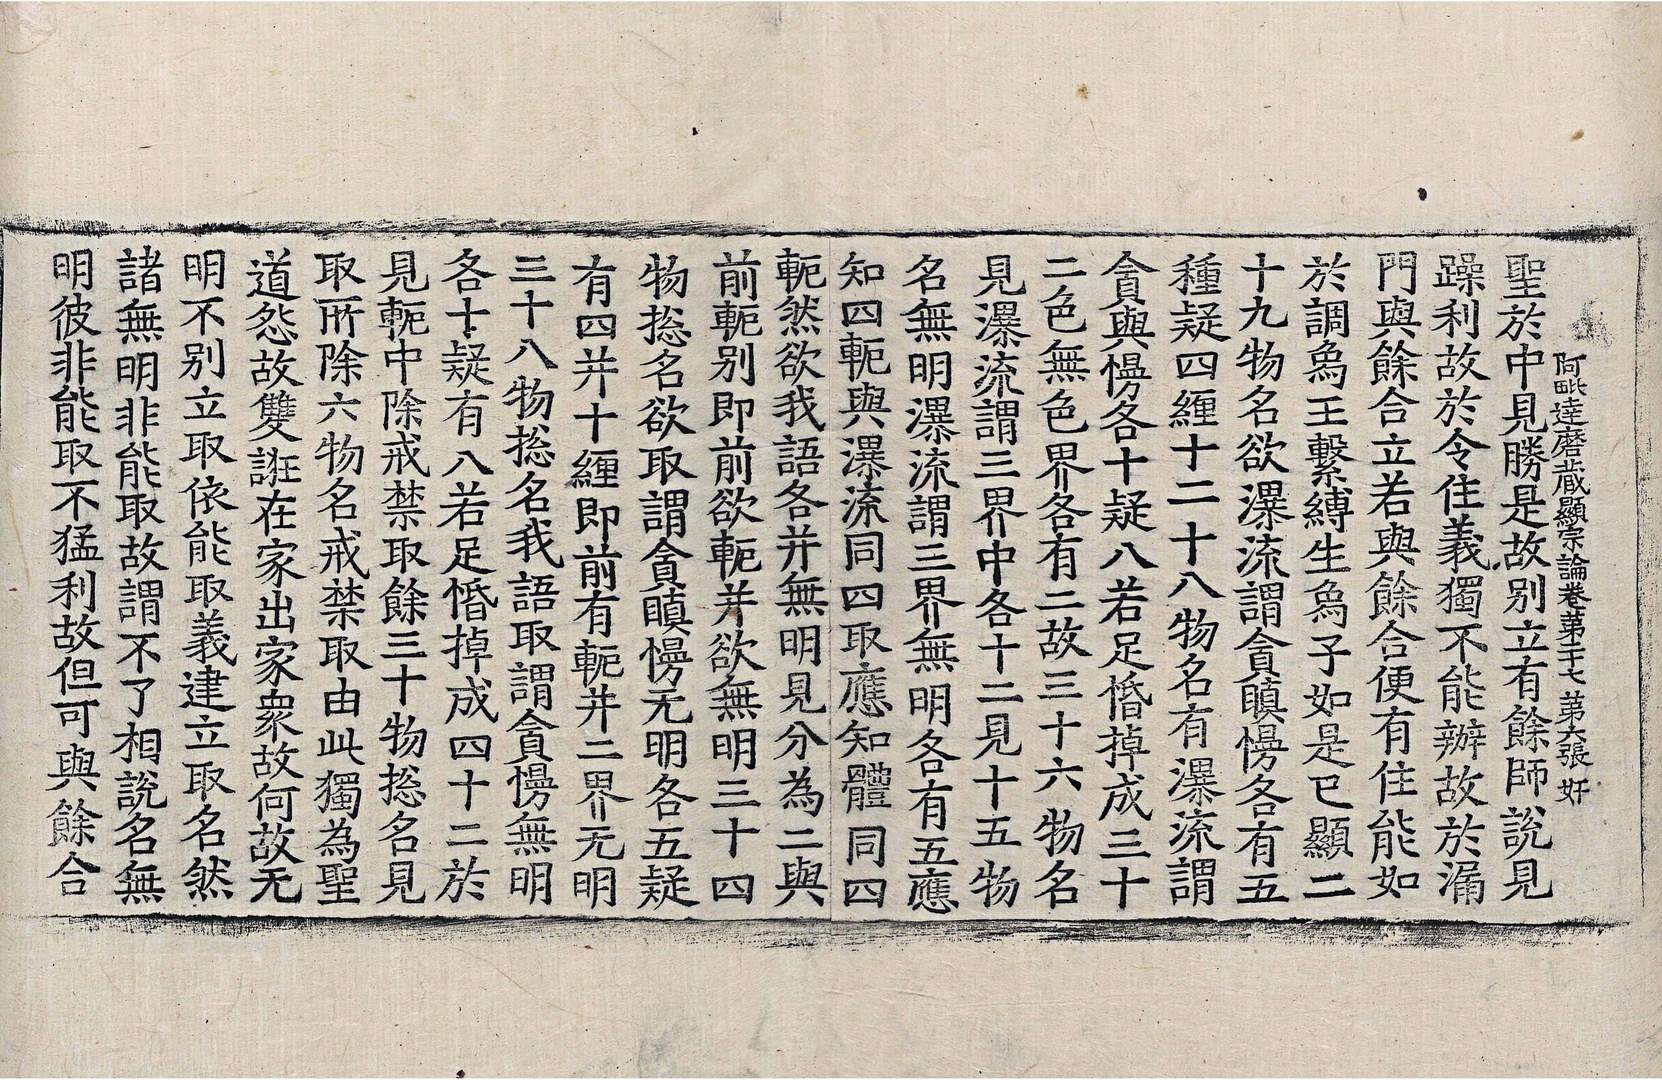 阿毗達磨蔵顯宗論卷苐二十七 苐六張 奸
聖於中見勝是故别立有餘師說見
躁利故於令住義獨不能辦故於漏
門與餘合立若與餘合便有住能如
於調象王繫縛生象子如是已顯二
十九物名欲瀑流謂貪瞋慢各有五
種疑四纏十二十八物名有瀑流謂
貪與慢各十疑八若足惛掉成三十
二色無色界各有二故三十六物名
見瀑流謂三界中各十二見十五物
名無明瀑流謂三界無明各有五應
知四軛與瀑流同四取應知體同四
軛然欲我語各并無明見分為二與
前軛别即前欲軛并欲無明三十四
物捴名欲取謂貪瞋慢无明各五疑
有四并十纏即前有軛并二界无明
三十八物捴名我語取謂貪慢無明
各十疑有八若足惛掉成四十二於
見軛中除戒禁取餘三十物捴名見
取所除六物名戒禁取由此獨為聖
道怨故雙誑在家出家衆故何故无
明不别立取依能取義建立取名然
諸無明非能取故謂不了相說名無
明彼非能取不猛利故但可與餘合